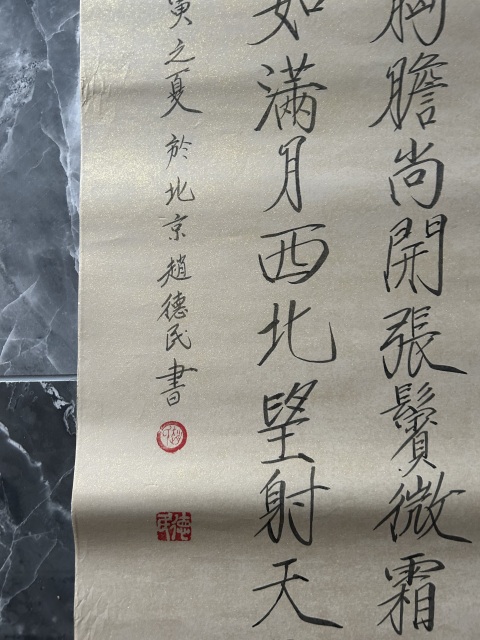 胸膽尚開張鬢微霜
如滿月西北望射天
寅之夏於北京趙德民書
德民